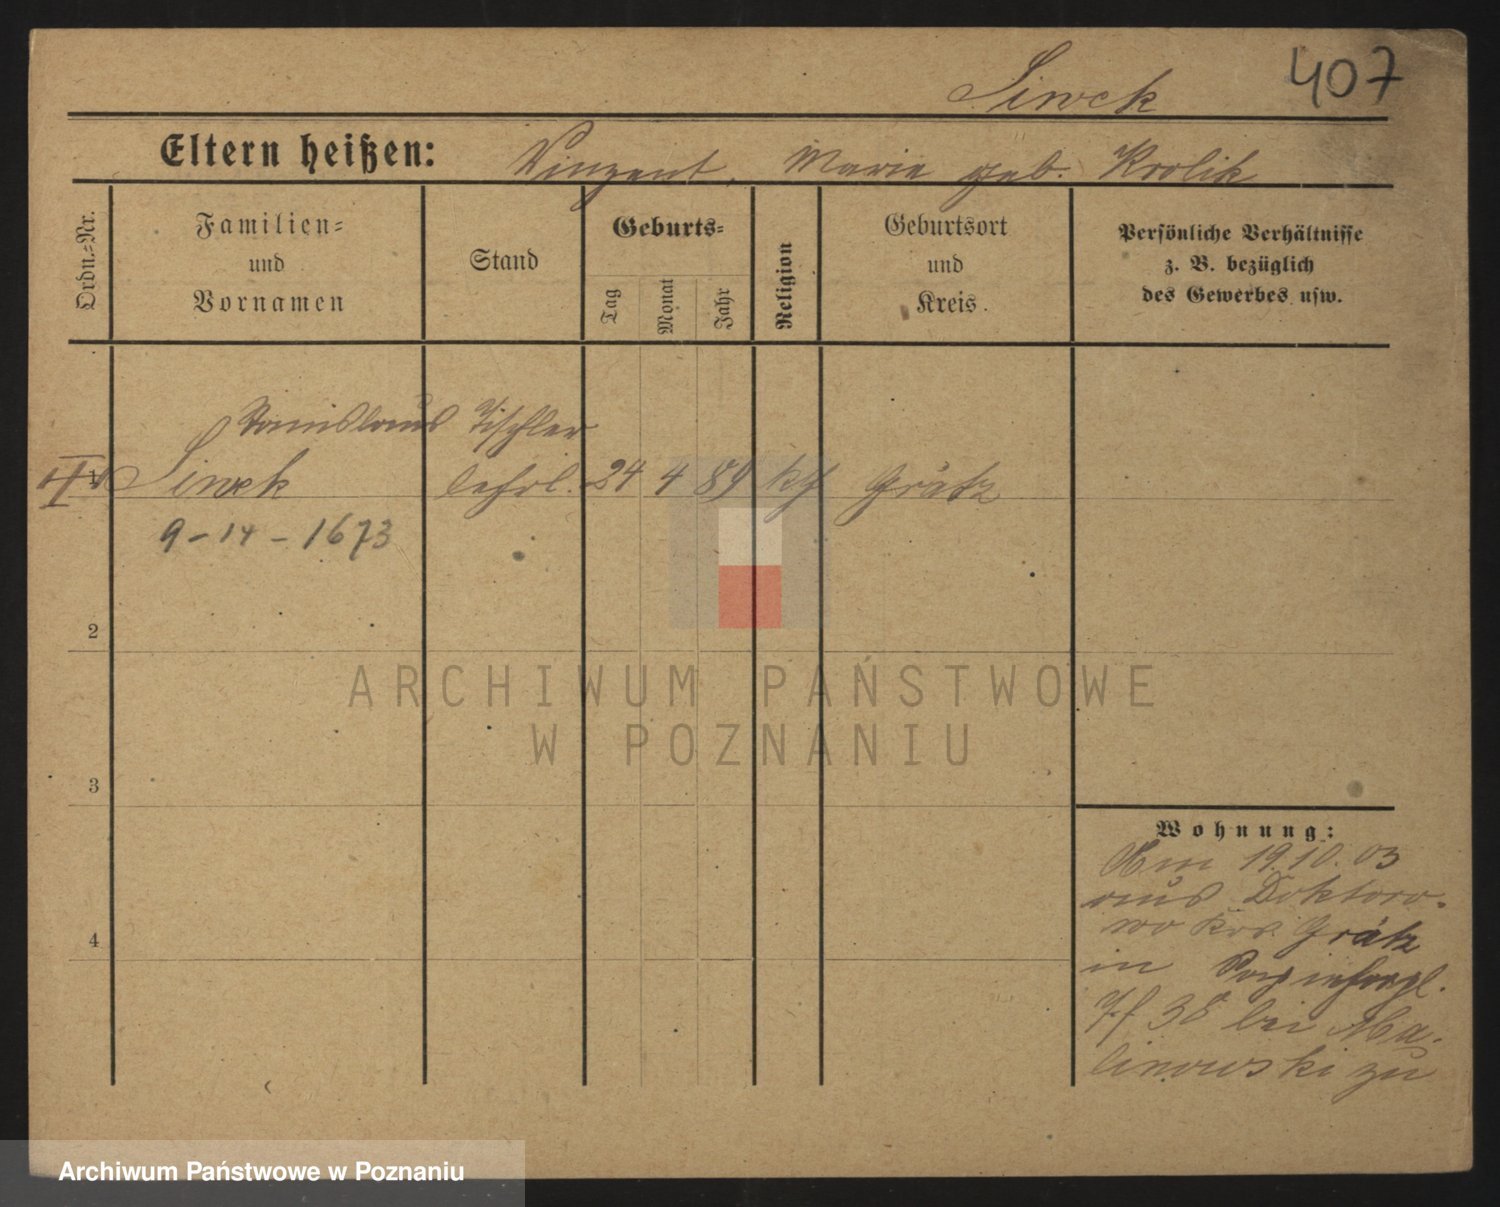 407
Siwek
Eltern heißen: Vinzent, Marie geb. Krolik
Ordn.=Nr.
Familien=
und
Vornamen
Stand
Geburts=
Tag
Monat
Jahr
Religion
Geburtsort
und
Kreis.
Persönliche Verhältnisse
z. B. bezüglich
des Gewerbes usw.
Stanislaus Tischler
1 Siwek lehrl. 24 4 89 kf Grätz
9-14-1673
2
ARCHIWUM PAŃSTWOWE
W POZNANIU
3
Wohnung:
Am 19.10.03
aus Doktoro-
wo Krs. Grätz
4
in
38 bei Ma-
linowski zu
Archiwum Państwowe w Poznaniu